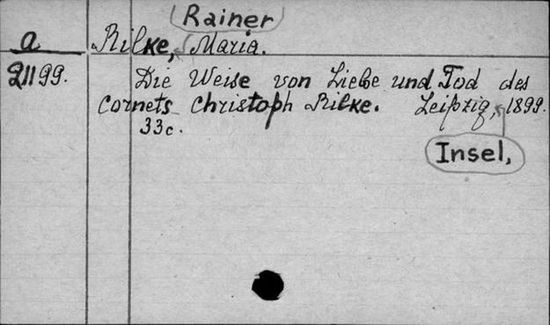 Rainer
a Rilke, Maria.
21199. Die Weise von Liebe und Tod des
Cornets Christoph Rilke. Leipzig, 1899.
33c.
Insel,